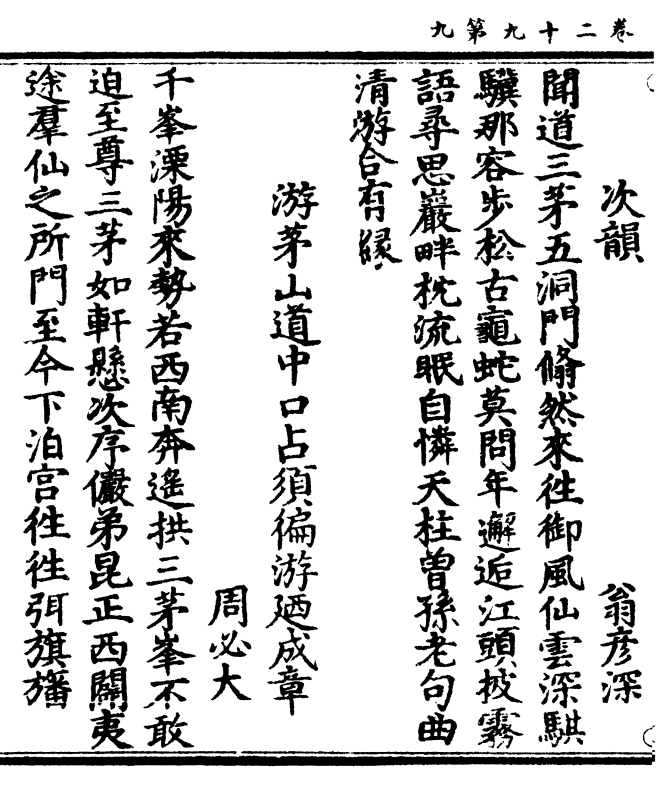 卷二十九第九
次韻　翁彦深
聞道三茅五洞門翛然來徃御風仙雲深騏
驥那容步松古竈蛇莫問年邂逅江頭披霧
語尋思巖畔枕流眠自憐天柱曾孫老句曲
清游合有緣
游茅山道中口占須徧游廼成章
周必大
千峯溧陽來勢若西南奔遙拱三茅峯不敢
迫至尊三茅如軒懸次序儼弟昆正西闢夷
途羣仙之所門至今下泊宫徃徃弭旗旛